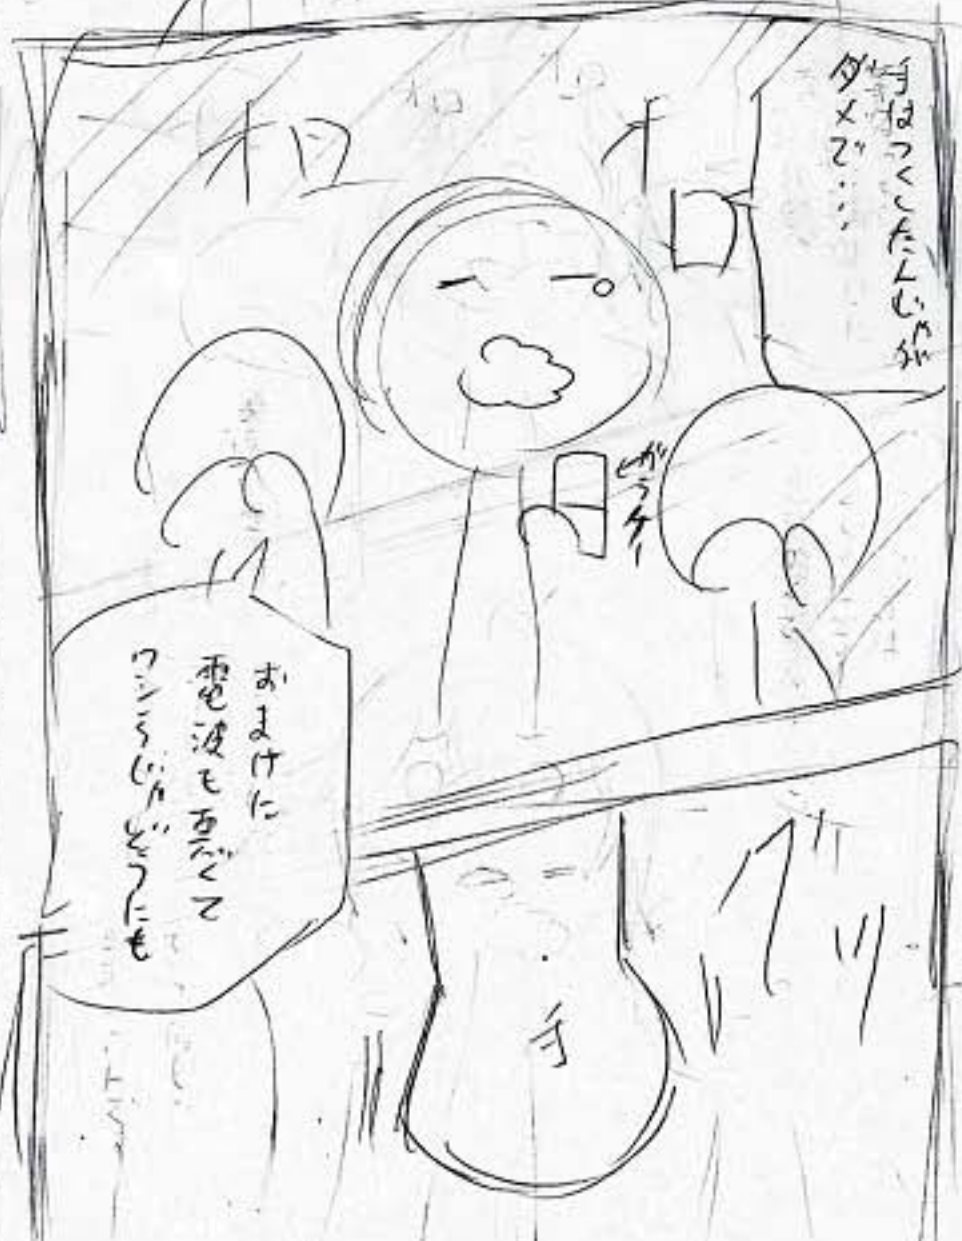 手はつくしたんじゃが
ダメで・・・
オロ
オロ
ガラケー
おまけに
電波も悪くて
ワシらじゃどうにも
手